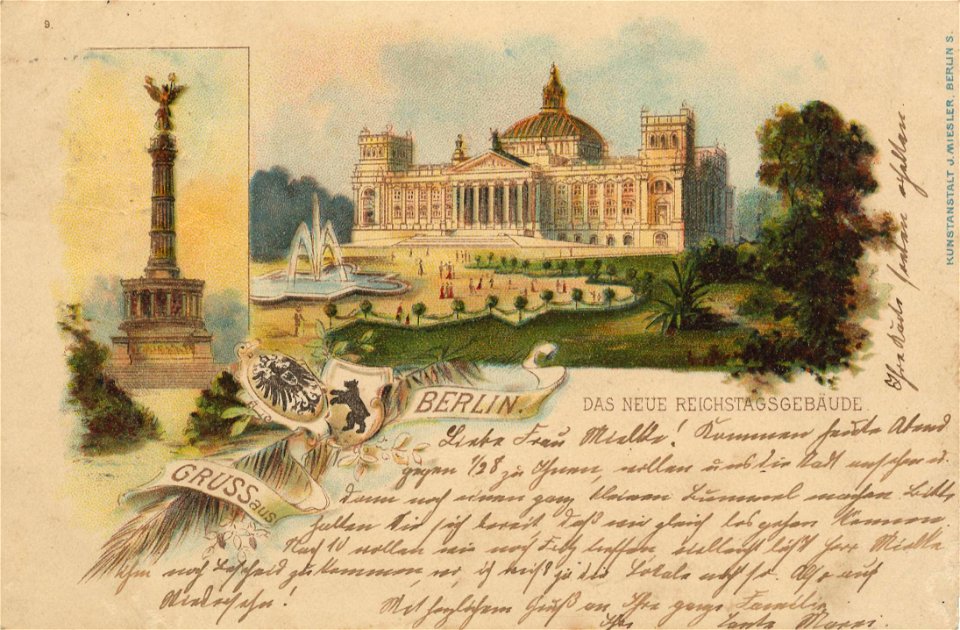 9.
KUNSTANSTALT J. MIESLER, BERLIN S.
GRUSS aus
BERLIN.
DAS NEUE REICHSTAGSGEBÄUDE.
Liebe Frau Mielke! Kommen heute Abend
gegen 1/2 8 zu Ihnen, wollen uns die Stadt ansehen u.
dann noch einen ganz kleinen Bummel machen. Bitte
halten Sie sich bereit, daß wir gleich losgehen können.
Nach 10 wollen wir noch Fritz treffen, vielleicht läßt Herr Mielke
ihm noch Bescheid zukommen, wo, ich weiß ja die Lokale nicht so. Also auf
Wiedersehn!
Mit herzlichem Gruß an Ihre ganze Familie
Ihre Tante
Ihre Karte erhalten.